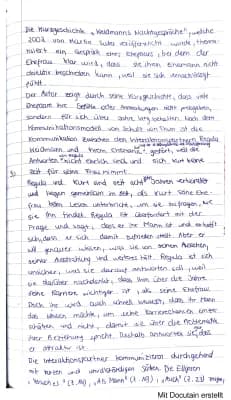 Die Kurzgeschichte „Waldmanns Nachtgespräche", welche
2002 von Martin Suter veröffentlicht wurde, thema-
tisiert ein Gespräch eines Ehepaars, bei dem der
Ehefrau klar wird, dass sie ihren Ehemann nicht
attraktiv
weil sie sich vernachlässigt
fühlt.
Der Autor zeigt durch seine Kurzgeschichte, dass viele
Ehepaare ihre Gefühle oder nicht
sondern für sich über Jahre lang behalten. Nach dem
Kommunikationsmodell von Schulz von Thun ist die
Kommunikation zwischen den Interaktionspartnern Regula
und ihrem Ehemann, gestört, weil die
von Regula
Antworten nicht ehrlich sind und sich Kurt keine
Zeit für seine Frau nimmt.
Regula und Kurt sind seit acht Jahren verheiratet
und liegen gemeinsam im Bett, als Kurt seine Ehe-
frau beim Lesen unterbricht, um sie zu fragen, wie
sie ihn findet. Regula ist überfordert mit der
Frage und sagt, dass er ihr Mann ist und
sich damit zufrieden stellt. Aber er
will genauer wissen, was sie von seinem Aussehen,
seiner Ausstrahlung und weiteres hält. Regula ist sich
unsicher, und wie sie darauf antworten soll, weil
sie darüber nachdenkt, dass ihm über die Jahre
seine Karriere wichtiger ist, als seine Ehefrau.
Doch ihr wird auch schnell bewusst, dass ihr Mann
das wissen möchte, um seine Karrierechancen einzu-
schätzen und nicht, damit sie über die
ihrer Beziehung spricht. Deshalb antwortet sie, dass
er attraktiv ist.
Die Interaktionspartner kommunizieren durchgehend
mit kurzen und unvollständigen Sätzen. Die Ellipsen
„Als Mann" „Auch"
Mit Docutain erstellt